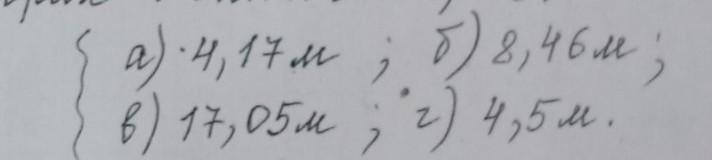 а) 4,17м ; б) 8,46м ;
в) 17,05м ; г) 4,5м.